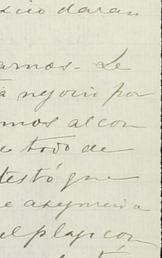 xico daran
rnos. Le
negocio por
mos al con
todo de
testó que
e aseguraria
el plazo con